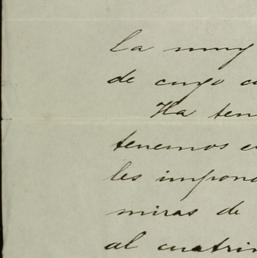 la muy
de cuyo
Ha ten
tenemos
les impon
miras de
al cuatrim